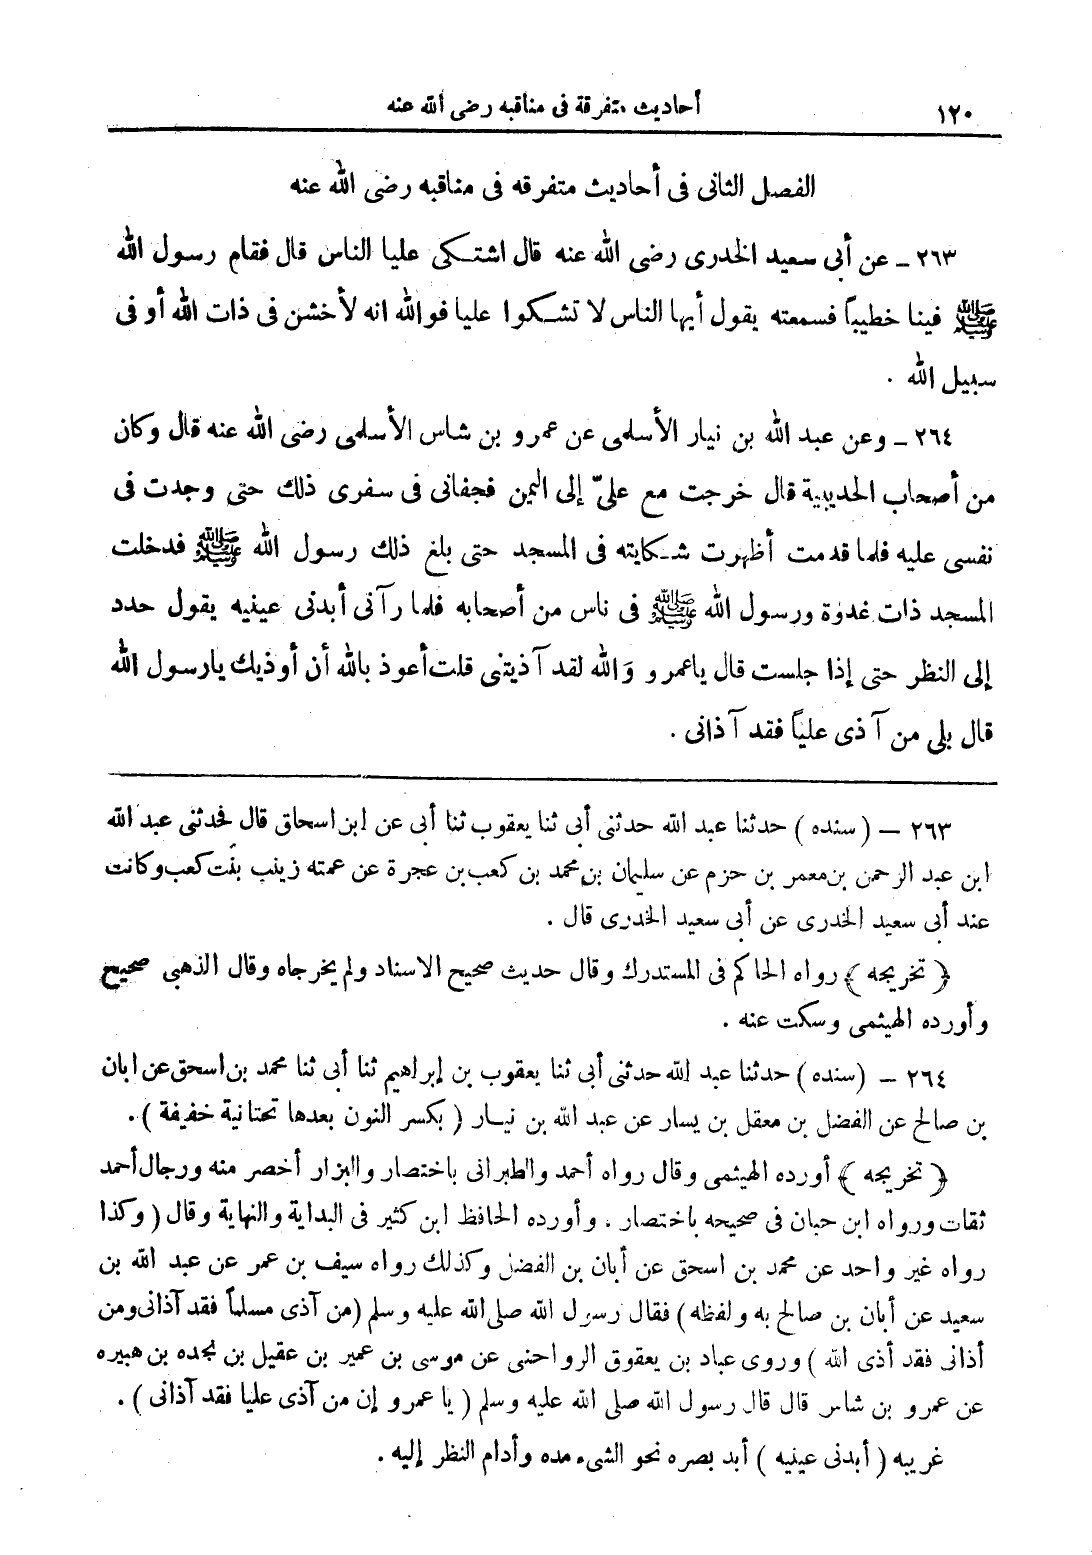 ١٢٠ أحاديث متفرقة فى مناقبه رضى الله عنه
الفصل الثانى فى أحاديث متفرقه فى مناقبه رضى الله عنه
٢٦٣ ـ عن أبى سعيد الخدرى رضى الله عنه قال اشتكى عليا الناس قال فقام رسول الله
ﷺ فينا خطيباً فسمعته يقول أيها الناس لا تشكوا عليا فوالله انه لأخشن فى ذات الله أو فى
سبيل الله .
٢٦٤ ـ وعن عبد الله بن نيار الأسلمى عن عمرو بن شاس الأسلمى رضى الله عنه قال وكان
من أصحاب الحديبية قال خرجت مع علىّ إلى اليمن فجفانى فى سفرى ذلك حتى وجدت فى
نفسى عليه فلما قدمت أظهرت شكايته فى المسجد حتى بلغ ذلك رسول الله ﷺ فدخلت
المسجد ذات غدوة ورسول الله ﷺ فى ناس من أصحابه فلما رآنى أبدنى عينيه يقول حدد
إلى النظر حتى إذا جلست قال ياعمرو وَالله لقد آذيتنى قلت أعوذ بالله أن أوذيك يارسول الله
قال بلى من آذى علياً فقد آذانى .
٢٦٣ — (سنده) حدثنا عبد الله حدثنى أبى ثنا يعقوب ثنا أبى عن ابن اسحاق قال فحدثنى عبد الله
ابن عبد الرحمن بن معمر بن حزم عن سليمان بن محمد بن كعب بن عجرة عن عمته زينب بنت كعب وكانت
عند أبى سعيد الخدرى عن أبى سعيد الخدرى قال .
﴿ تخريجه ﴾ رواه الحاكم فى المستدرك وقال حديث صحيح الاسناد ولم يخرجاه وقال الذهبى صحيح
وأورده الهيثمى وسكت عنه .
٢٦٤ — (سنده) حدثنا عبد الله حدثنى أبى ثنا يعقوب بن إبراهيم ثنا أبى ثنا محمد بن اسحق عن ابان
بن صالح عن الفضل بن معقل بن يسار عن عبد الله بن نيار ( بكسر النون بعدها تحتانية خفيفة ) .
﴿ تخريجه ﴾ أورده الهيثمى وقال رواه أحمد والطبرانى باختصار والبزار أخصر منه ورجال أحمد
ثقات ورواه ابن حبان فى صحيحه باختصار . وأورده الحافظ ابن كثير فى البداية والنهاية وقال ( وكذا
رواه غير واحد عن محمد بن اسحق عن أبان بن الفضل وكذلك رواه سيف بن عمر عن عبد الله بن
سعيد عن أبان بن صالح به ولفظه ) فقال رسول الله صلى الله عليه وسلم (من آذى مسلماً فقد آذانى ومن
أذانى فقد أذى الله ) وروى عباد بن يعقوق الرواحنى عن موسى بن عمير بن عقيل بن نجده بن هبيره
عن عمرو بن شاس قال قال رسول الله صلى الله عليه وسلم ( يا عمرو إن من آذى عليا فقد آذانى ) .
غريبه ( أبدنى عينيه ) أبد بصره نحو الشىء مده وأدام النظر إليه .